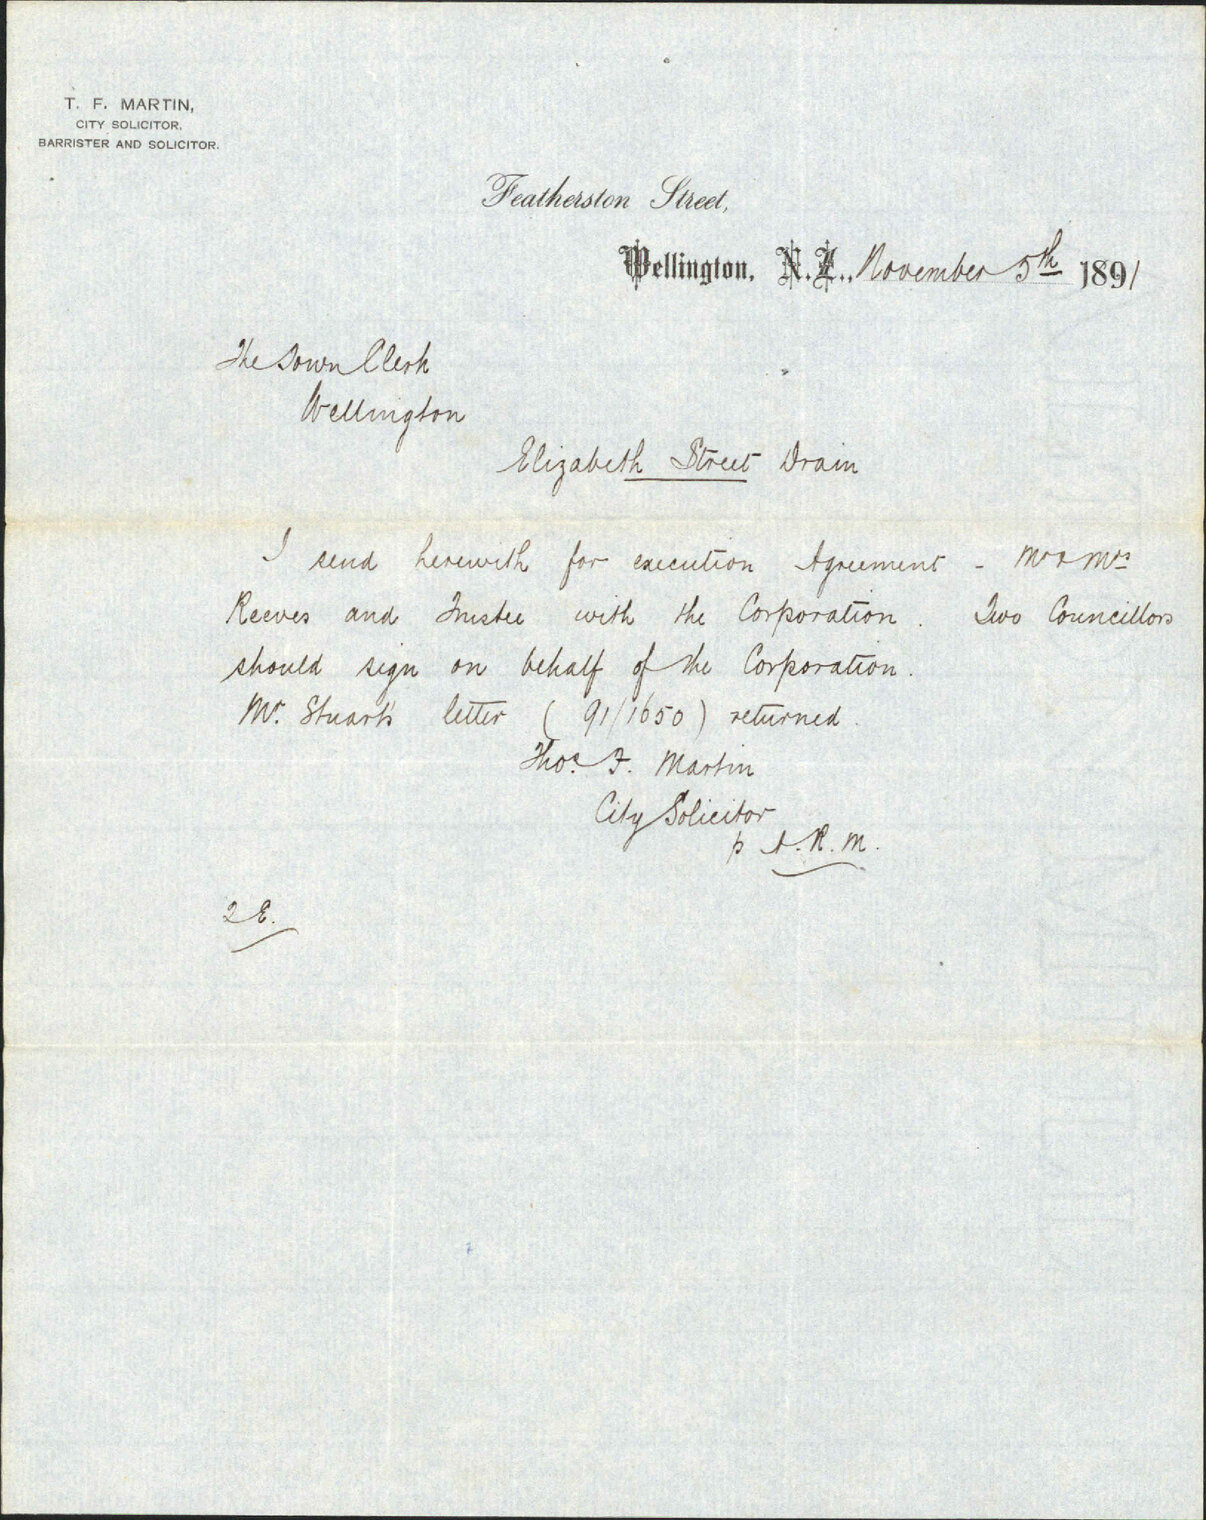 T. F. MARTIN,
CITY SOLICITOR.
BARRISTER AND SOLICITOR.
Featherston Street,
Wellington, N.Z., November 5th 1891
The Town Clerk
Wellington
Elizabeth Street Drain
I send herewith for execution Agreement - Mr & Mrs
Reeves and Trustee with the Corporation. Two Councillors
should sign on behalf of the Corporation.
Mr. Stuart's letter (91/1650) returned.
Thos. F. Martin
City Solicitor
p A.R.M.
2 E.